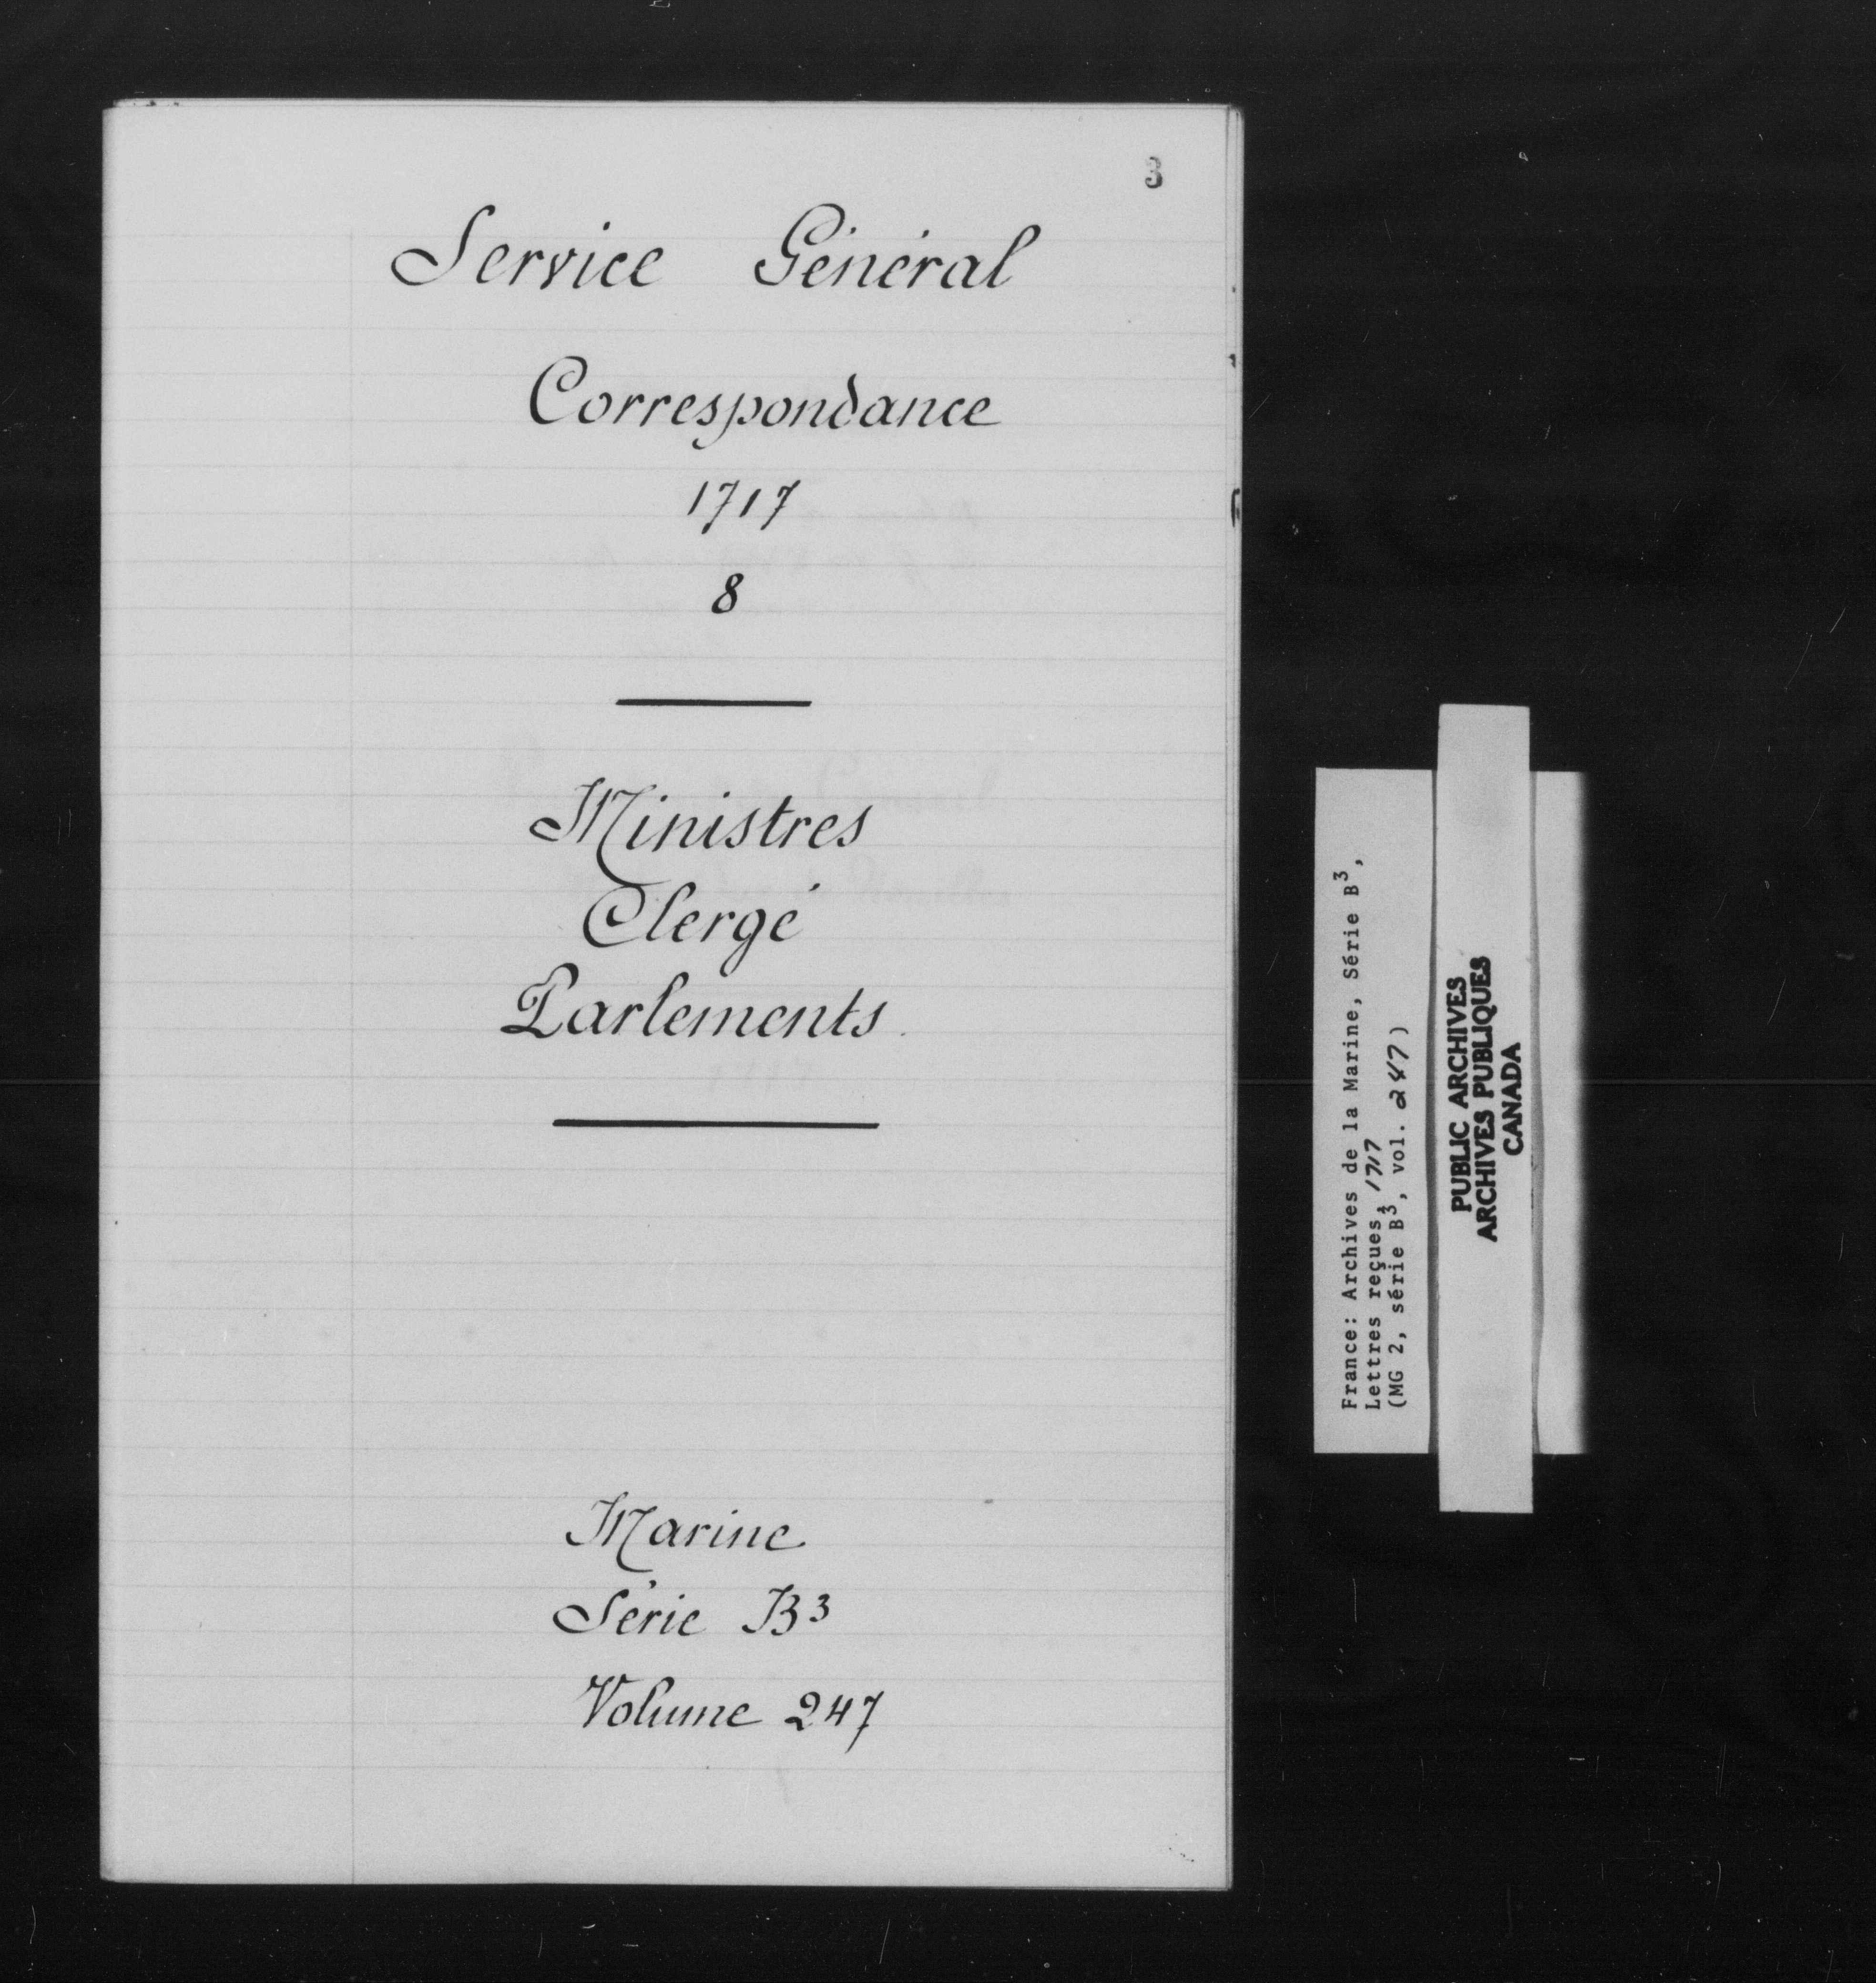 3
Service Général
Correspondance
1717
8
Ministres
Clergé
Parlements.
Marine
Série B3
Volume 247
France: Archives de la Marine, Série B3,
Lettres reçues, 1717
(MG 2, série B3, vol. 247)
PUBLIC ARCHIVES
ARCHIVES PUBLIQUES
CANADA